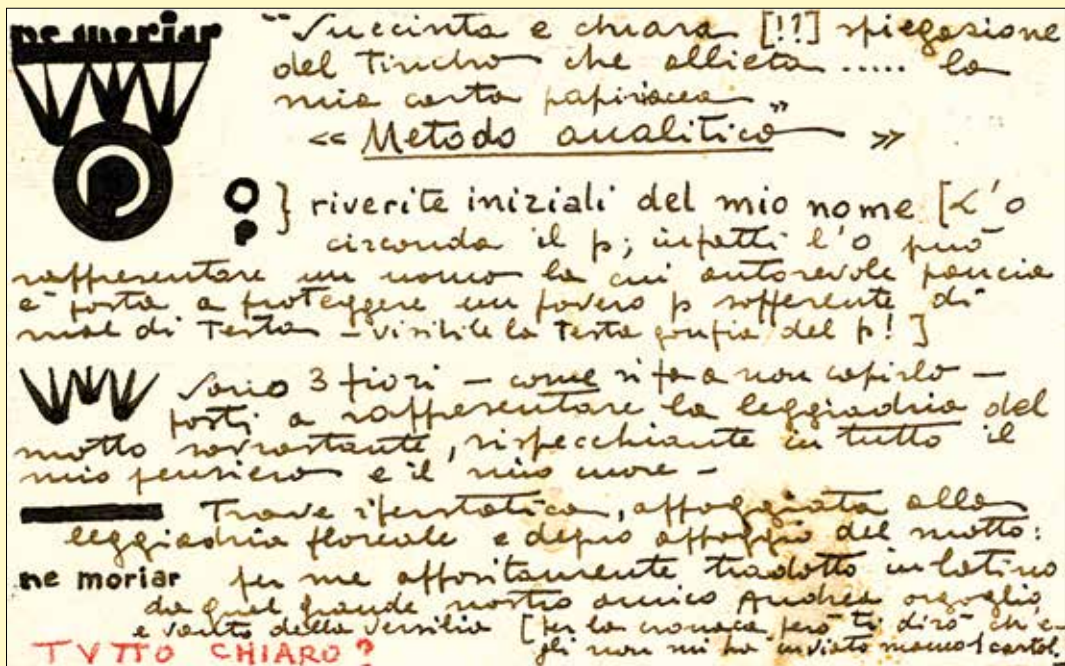 ne moriar
"Succinta e chiara [!?] spiegazione
del Timbro che allieta ..... la
mia carta papiriacea"
« Metodo analitico »
O
P } riverite iniziali del mio nome [L'o
circonda il p; infatti l'o può
rappresentare un uomo la cui autorevole pancia
è posta a proteggere un povero p sofferente di
mal di Testa - visibile la Testa gonfia del p! ]
Sono 3 fiori - come si fa a non capirlo -
posti a rappresentare la leggiadria del
motto sovrastante, rispecchiante in tutto il
mio pensiero e il mio cuore -
Trave iperstatica, appoggiata alla
leggiadria floreale e degno appoggio del motto:
ne moriar per me appositamente tradotto in latino
da quel grande nostro amico Andrea orgoglio
e vanto della Versilia [per la cronaca però ti dirò ch'e-
gli non mi ha inviato manco 1 cartol.
TVTTO CHIARO?